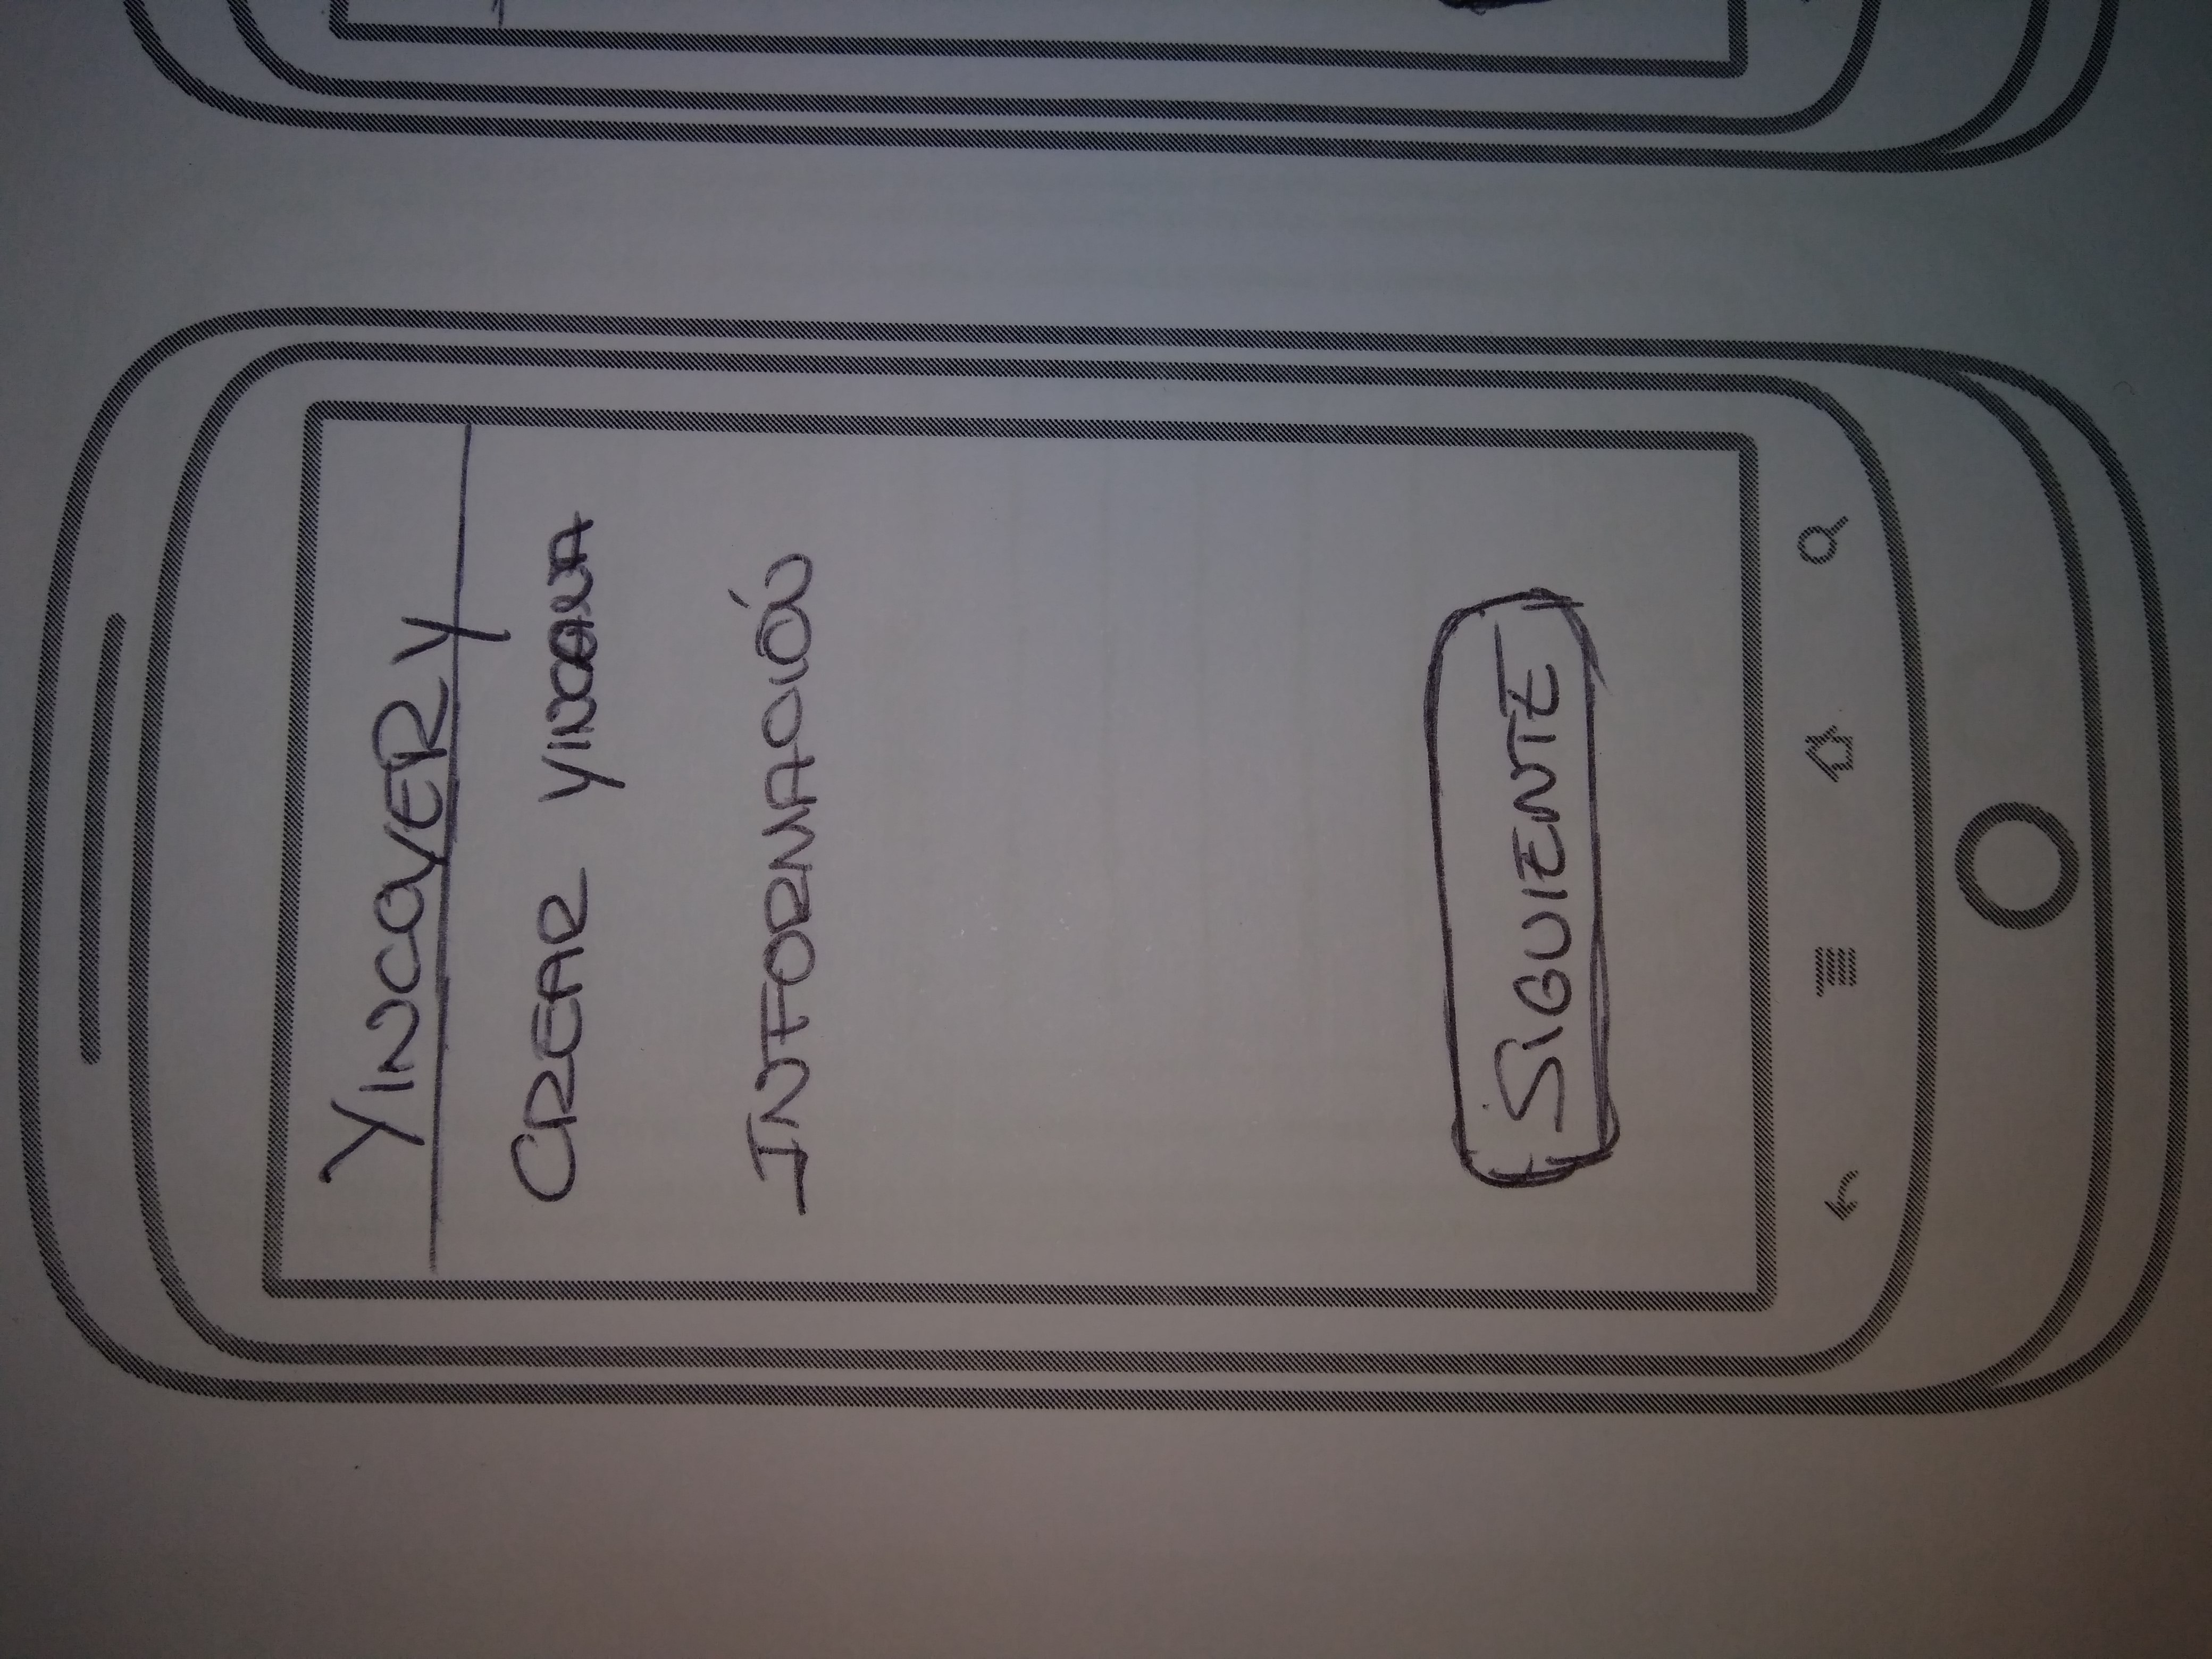 YINCOVERY
CREAR YINCANA
INFORMACIÓN
SIGUIENTE